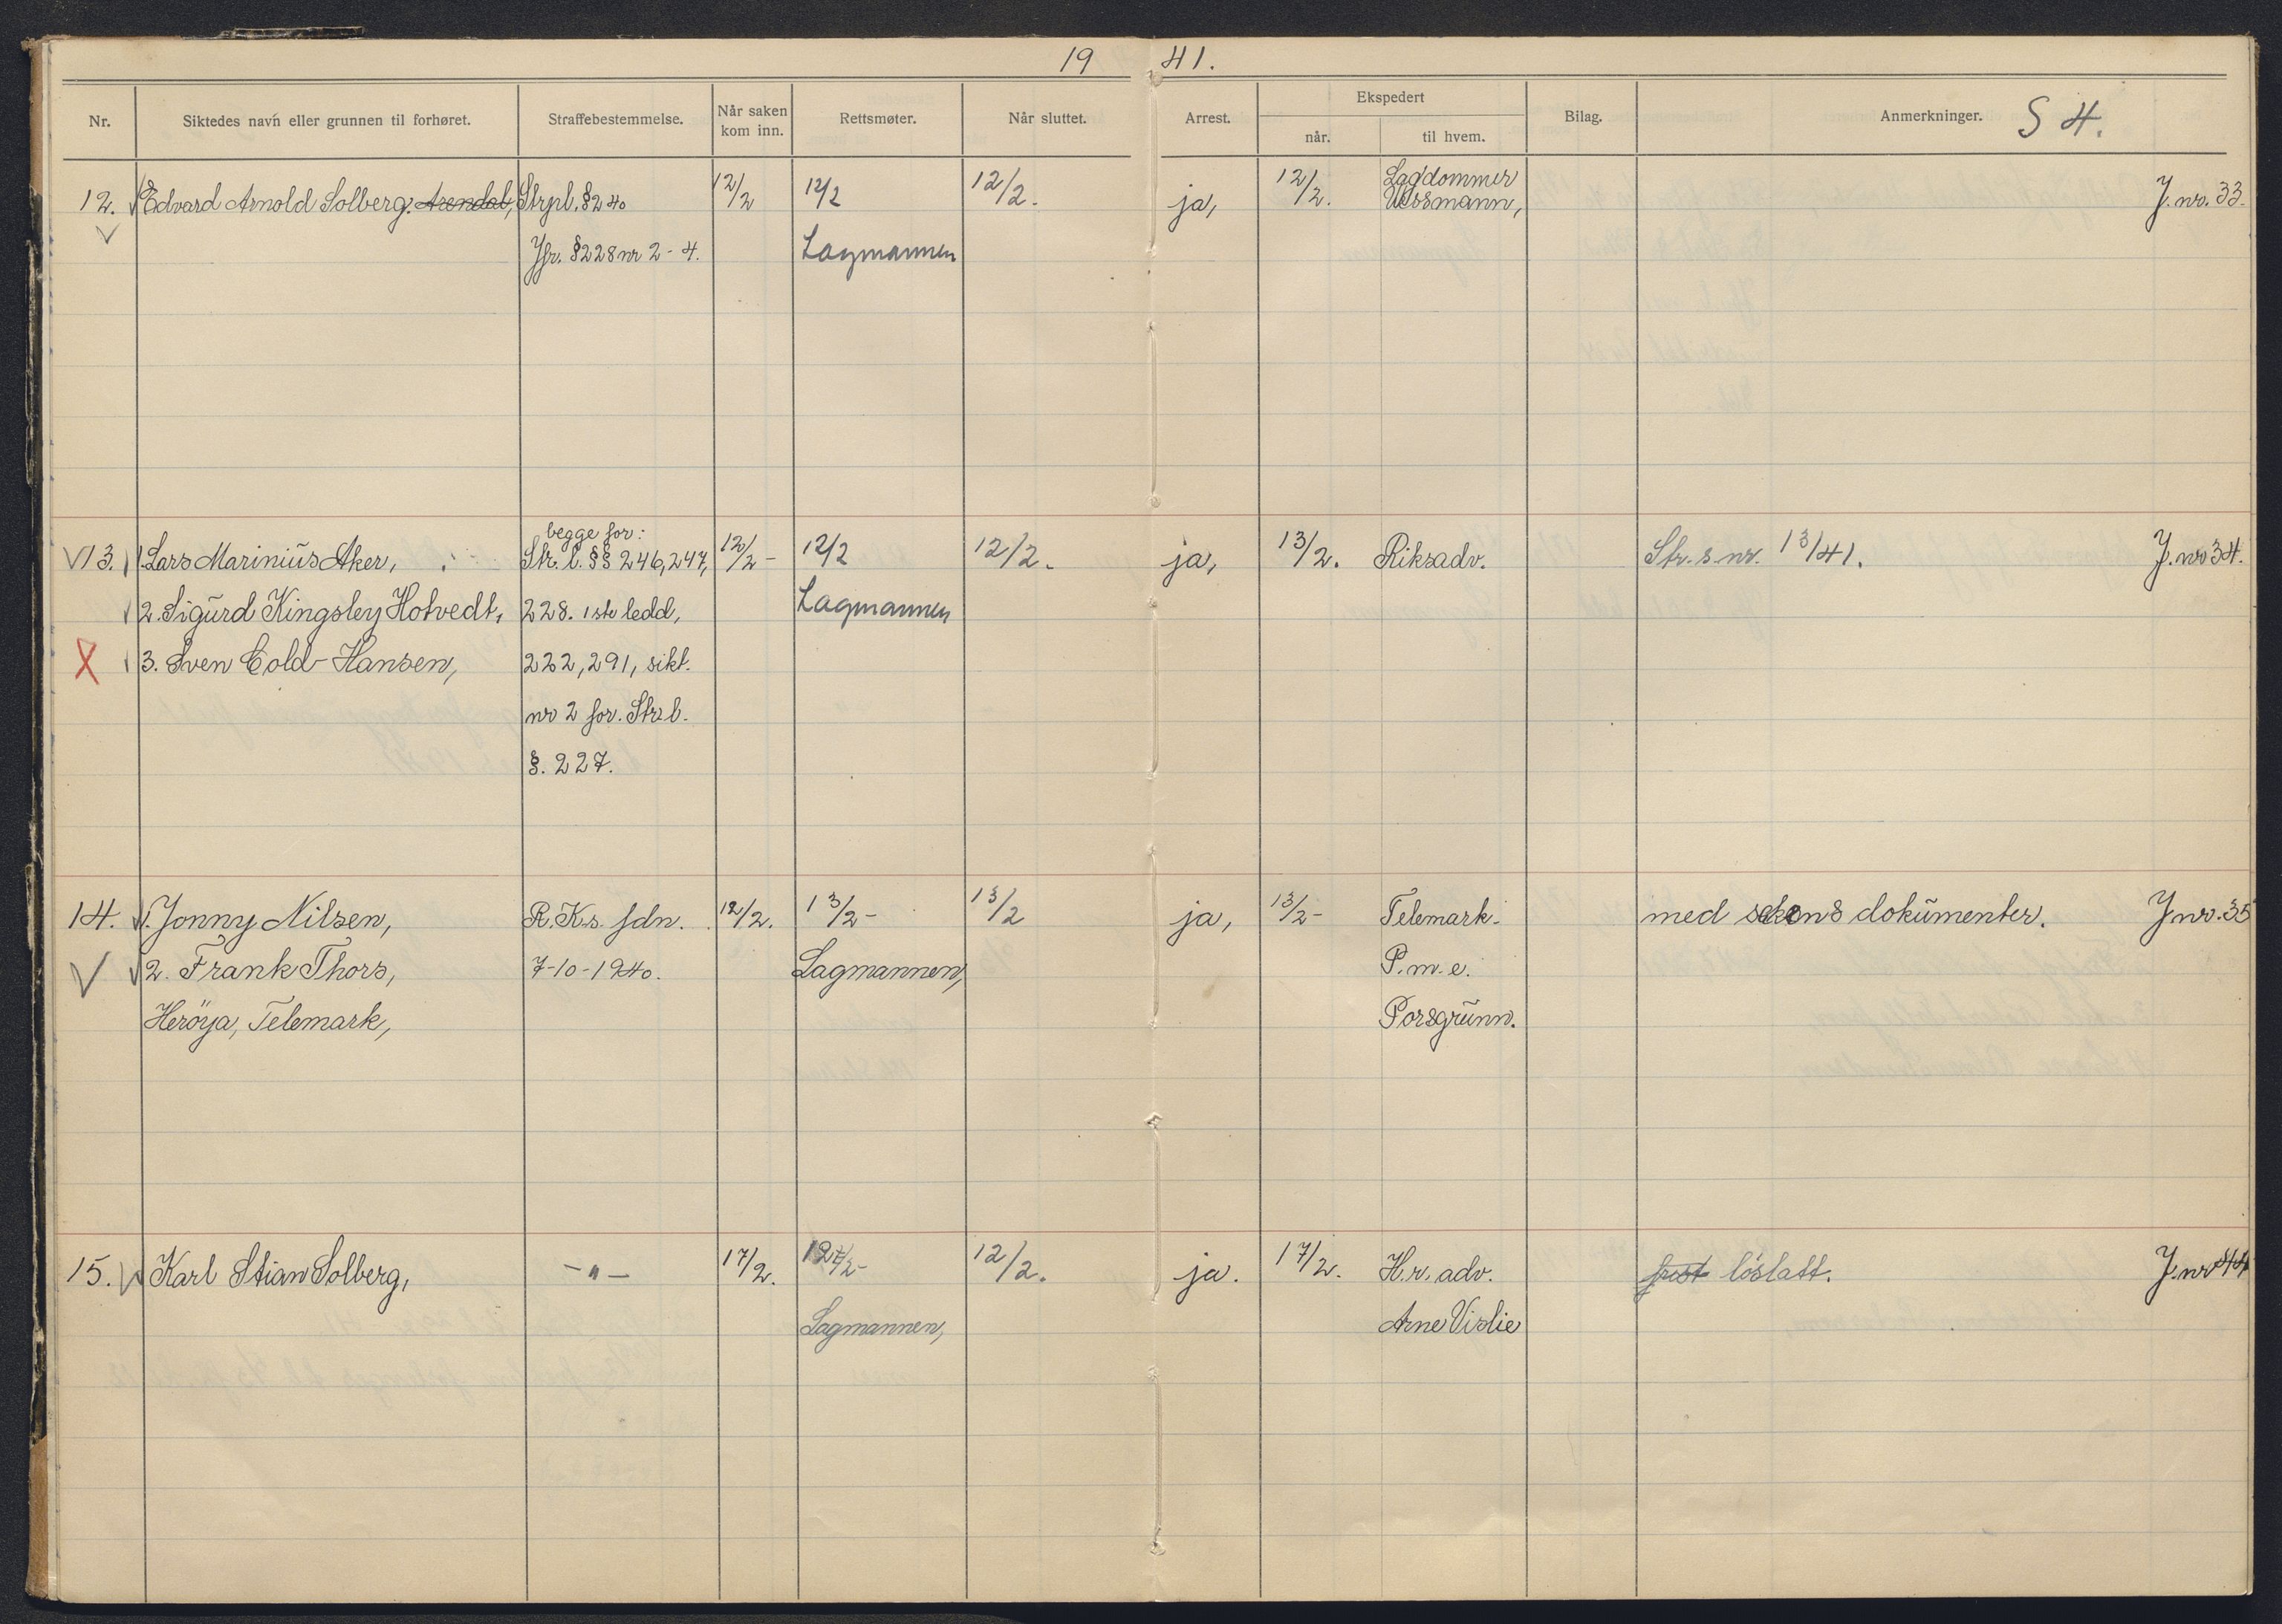 19 41.
Nr. Siktedes navn eller grunnen til forhøret. Straffebestemmelse. Når saken kom inn. Rettsmøter. Når sluttet. Arrest. Ekspedert når. til hvem. Bilag. Anmerkninger. S 4.
12. Edvard Arnold Solberg. Arendal, Strpl. § 240 12/2 12/2 12/2. ja, 12/2. Lagdommer J. nr. 33.
Jfr. § 228 nr 2-4. Lagmannen
begge for:
13. 1. Lars Marinius Aker, Str. l. §§ 246, 247, 12/2 - 12/2 12/2. ja, 13/2. Riksadv. Str. s nr. 13/41. J. nr 34.
2. Sigurd Kingsley Hotvedt, 228. 1ste ledd, Lagmannen
X 3. Sven Cold-Hansen, 222, 291, sikt.
nr 2 for. Strl.
§. 227.
14. 1. Jonny Nilsen, R. Ks. fdn. 12/2. 13/2 - 13/2 ja, 13/2 - Telemark. med sakens dokumenter. J nr. 35
2. Frank Thors, 7-10-1940. Lagmannen, P. m. e.
Heröya, Telemark, Porsgrunn.
15. Karl Stian Solberg, - " - 17/2. 12/2. ja. 17/2. H. r. adv. frist löslatt. J. nr 44
Lagmannen, Arne Vislie